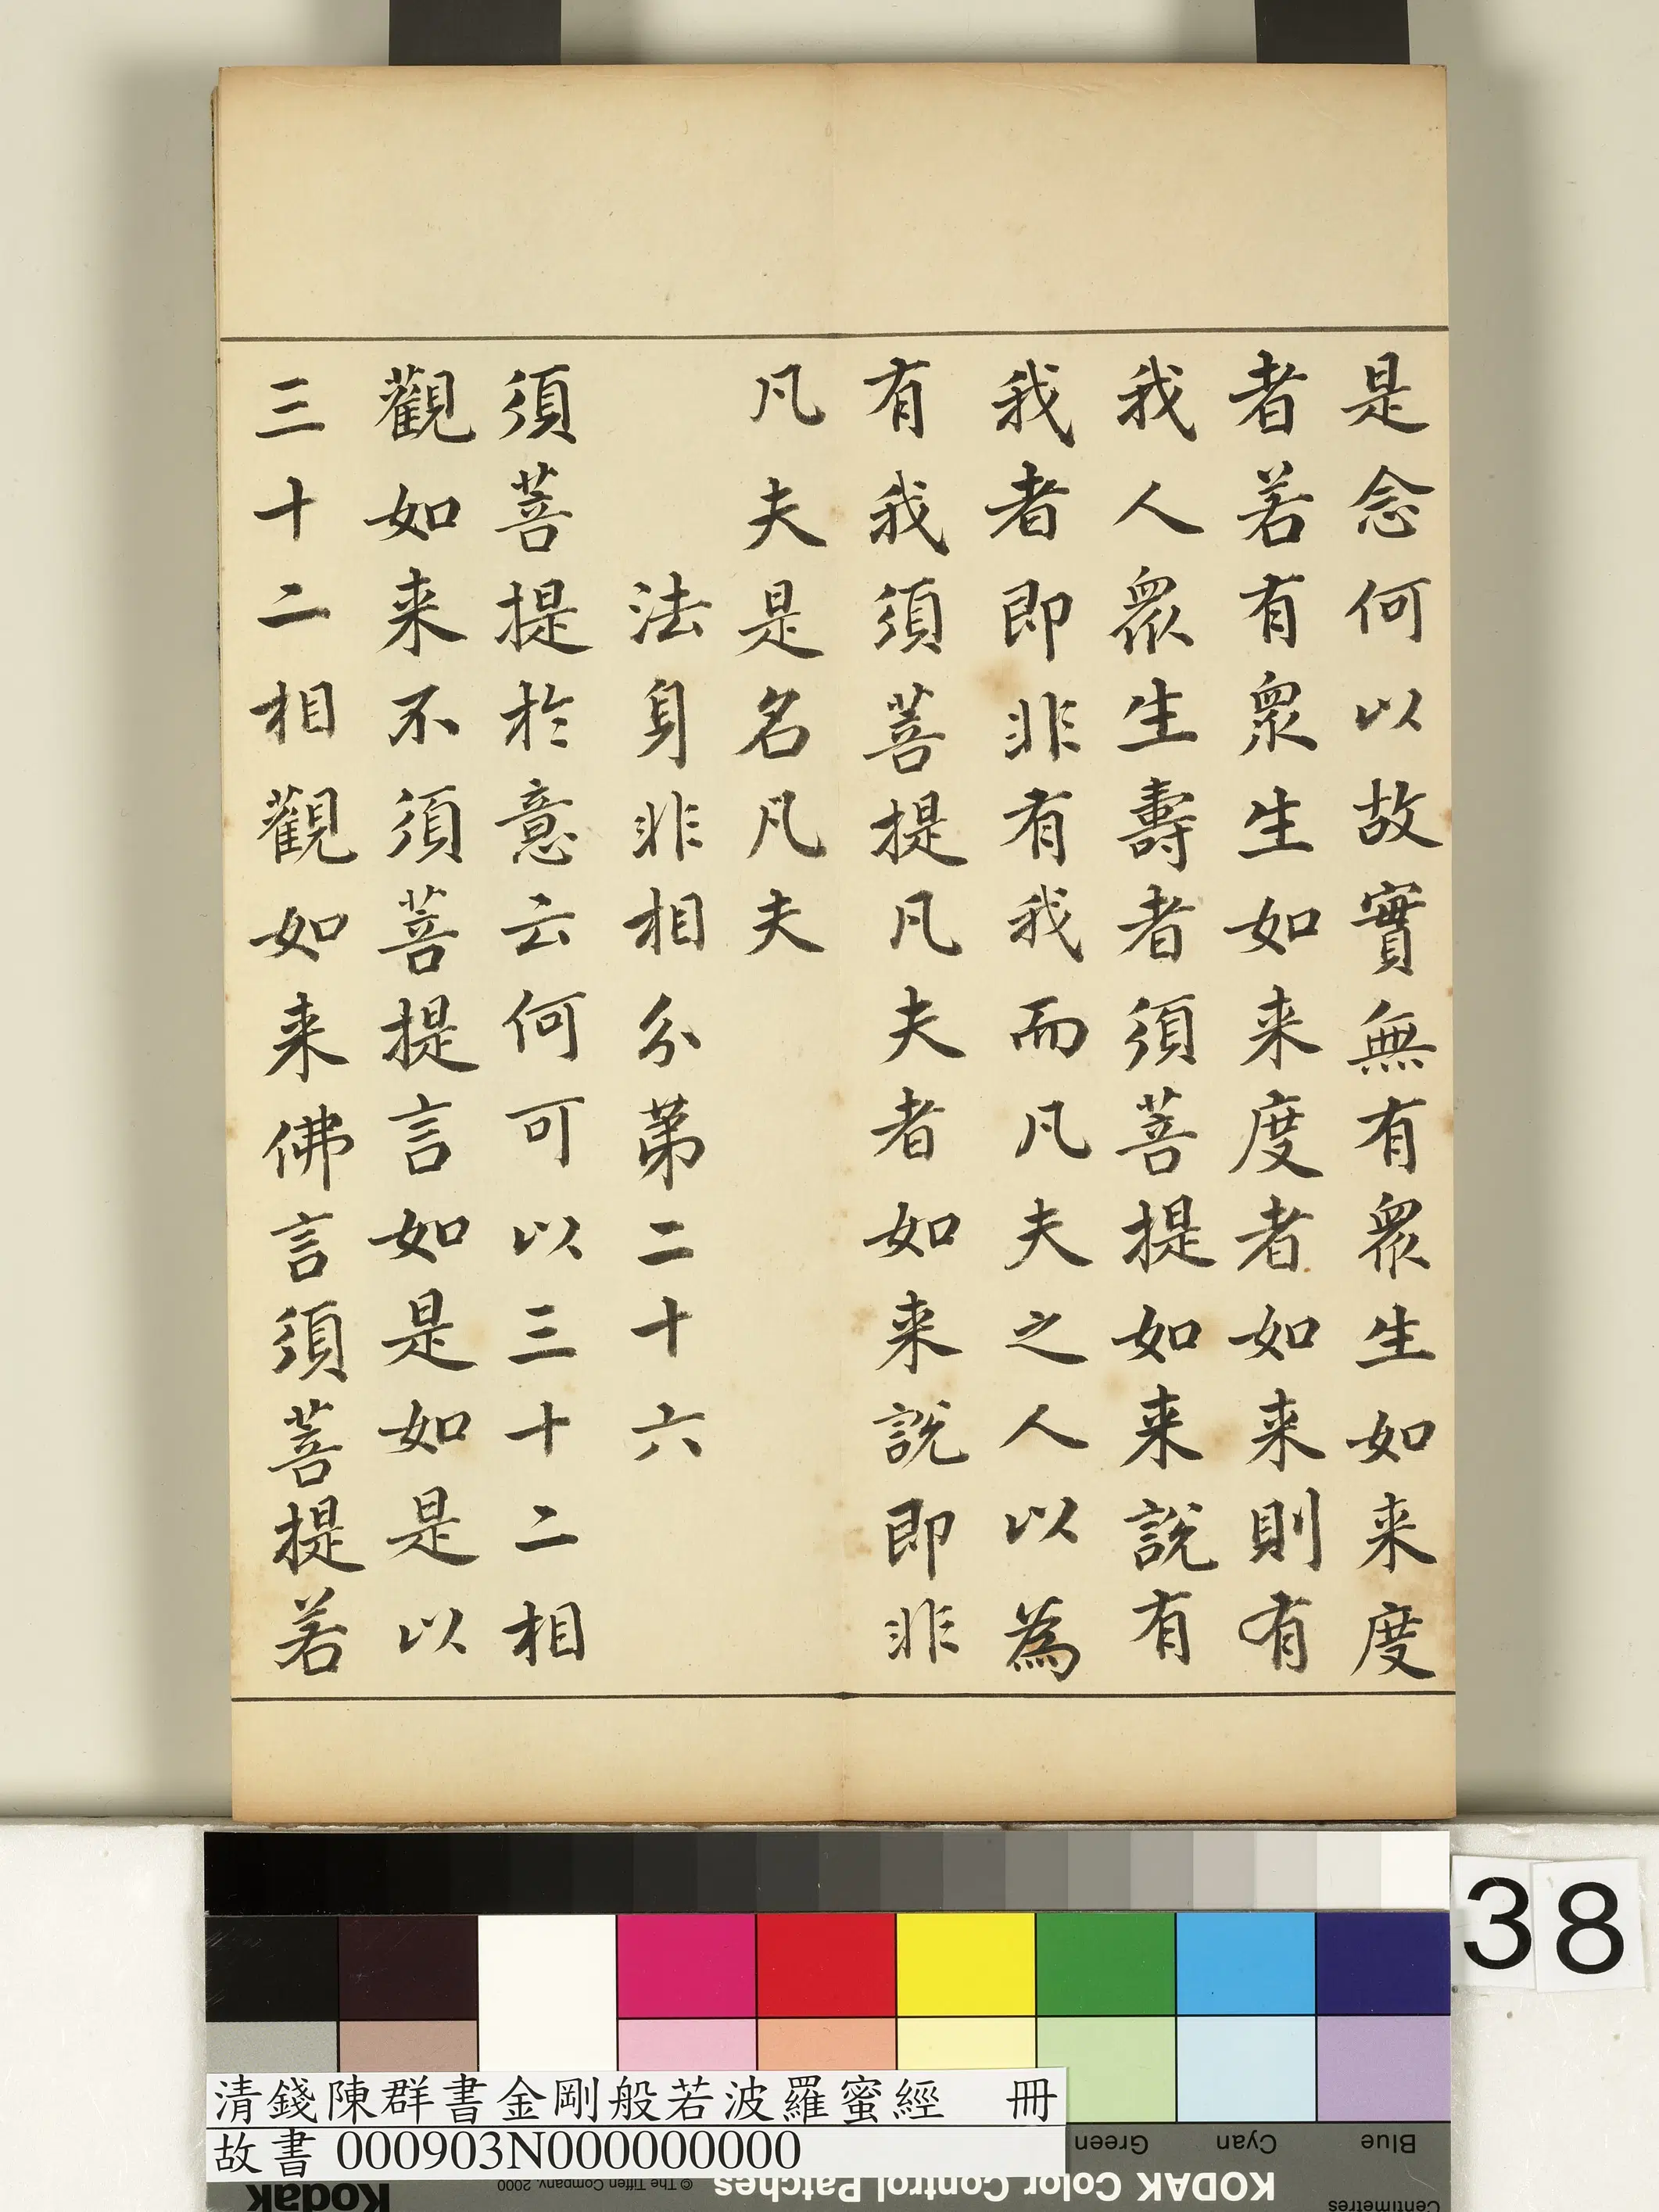 是念何以故實無有衆生如来度
者若有衆生如来度者如来則有
我人衆生壽者須菩提如来說有
我者即非有我而凡夫之人以為
有我須菩提凡夫者如来説即非
凡夫是名凡夫
法身非相分第二十六
須菩提於意云何可以三十二相
觀如来不須菩提言如是如是以
三十二相觀如来佛言須菩提若
38
清錢陳群書金剛般若波羅蜜經 冊
故書 000903N000000000
Green
Cyan
Blue
Kodak
© The Tiffen Company, 2000
KODAK Color Control Patches
Centimetres